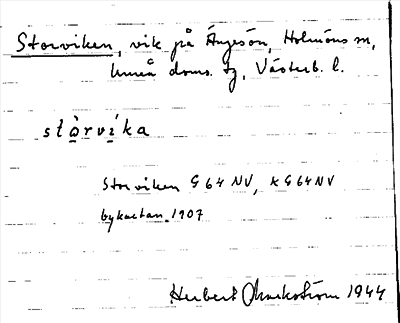 Storviken, vik på Ängesön, Holmöns sn,
Umeå doms. tg, Västerb. l.
stòrvíka
Storviken G 64 NV, KG 64 NV
bykartan 1907
Herbert Markström 1944